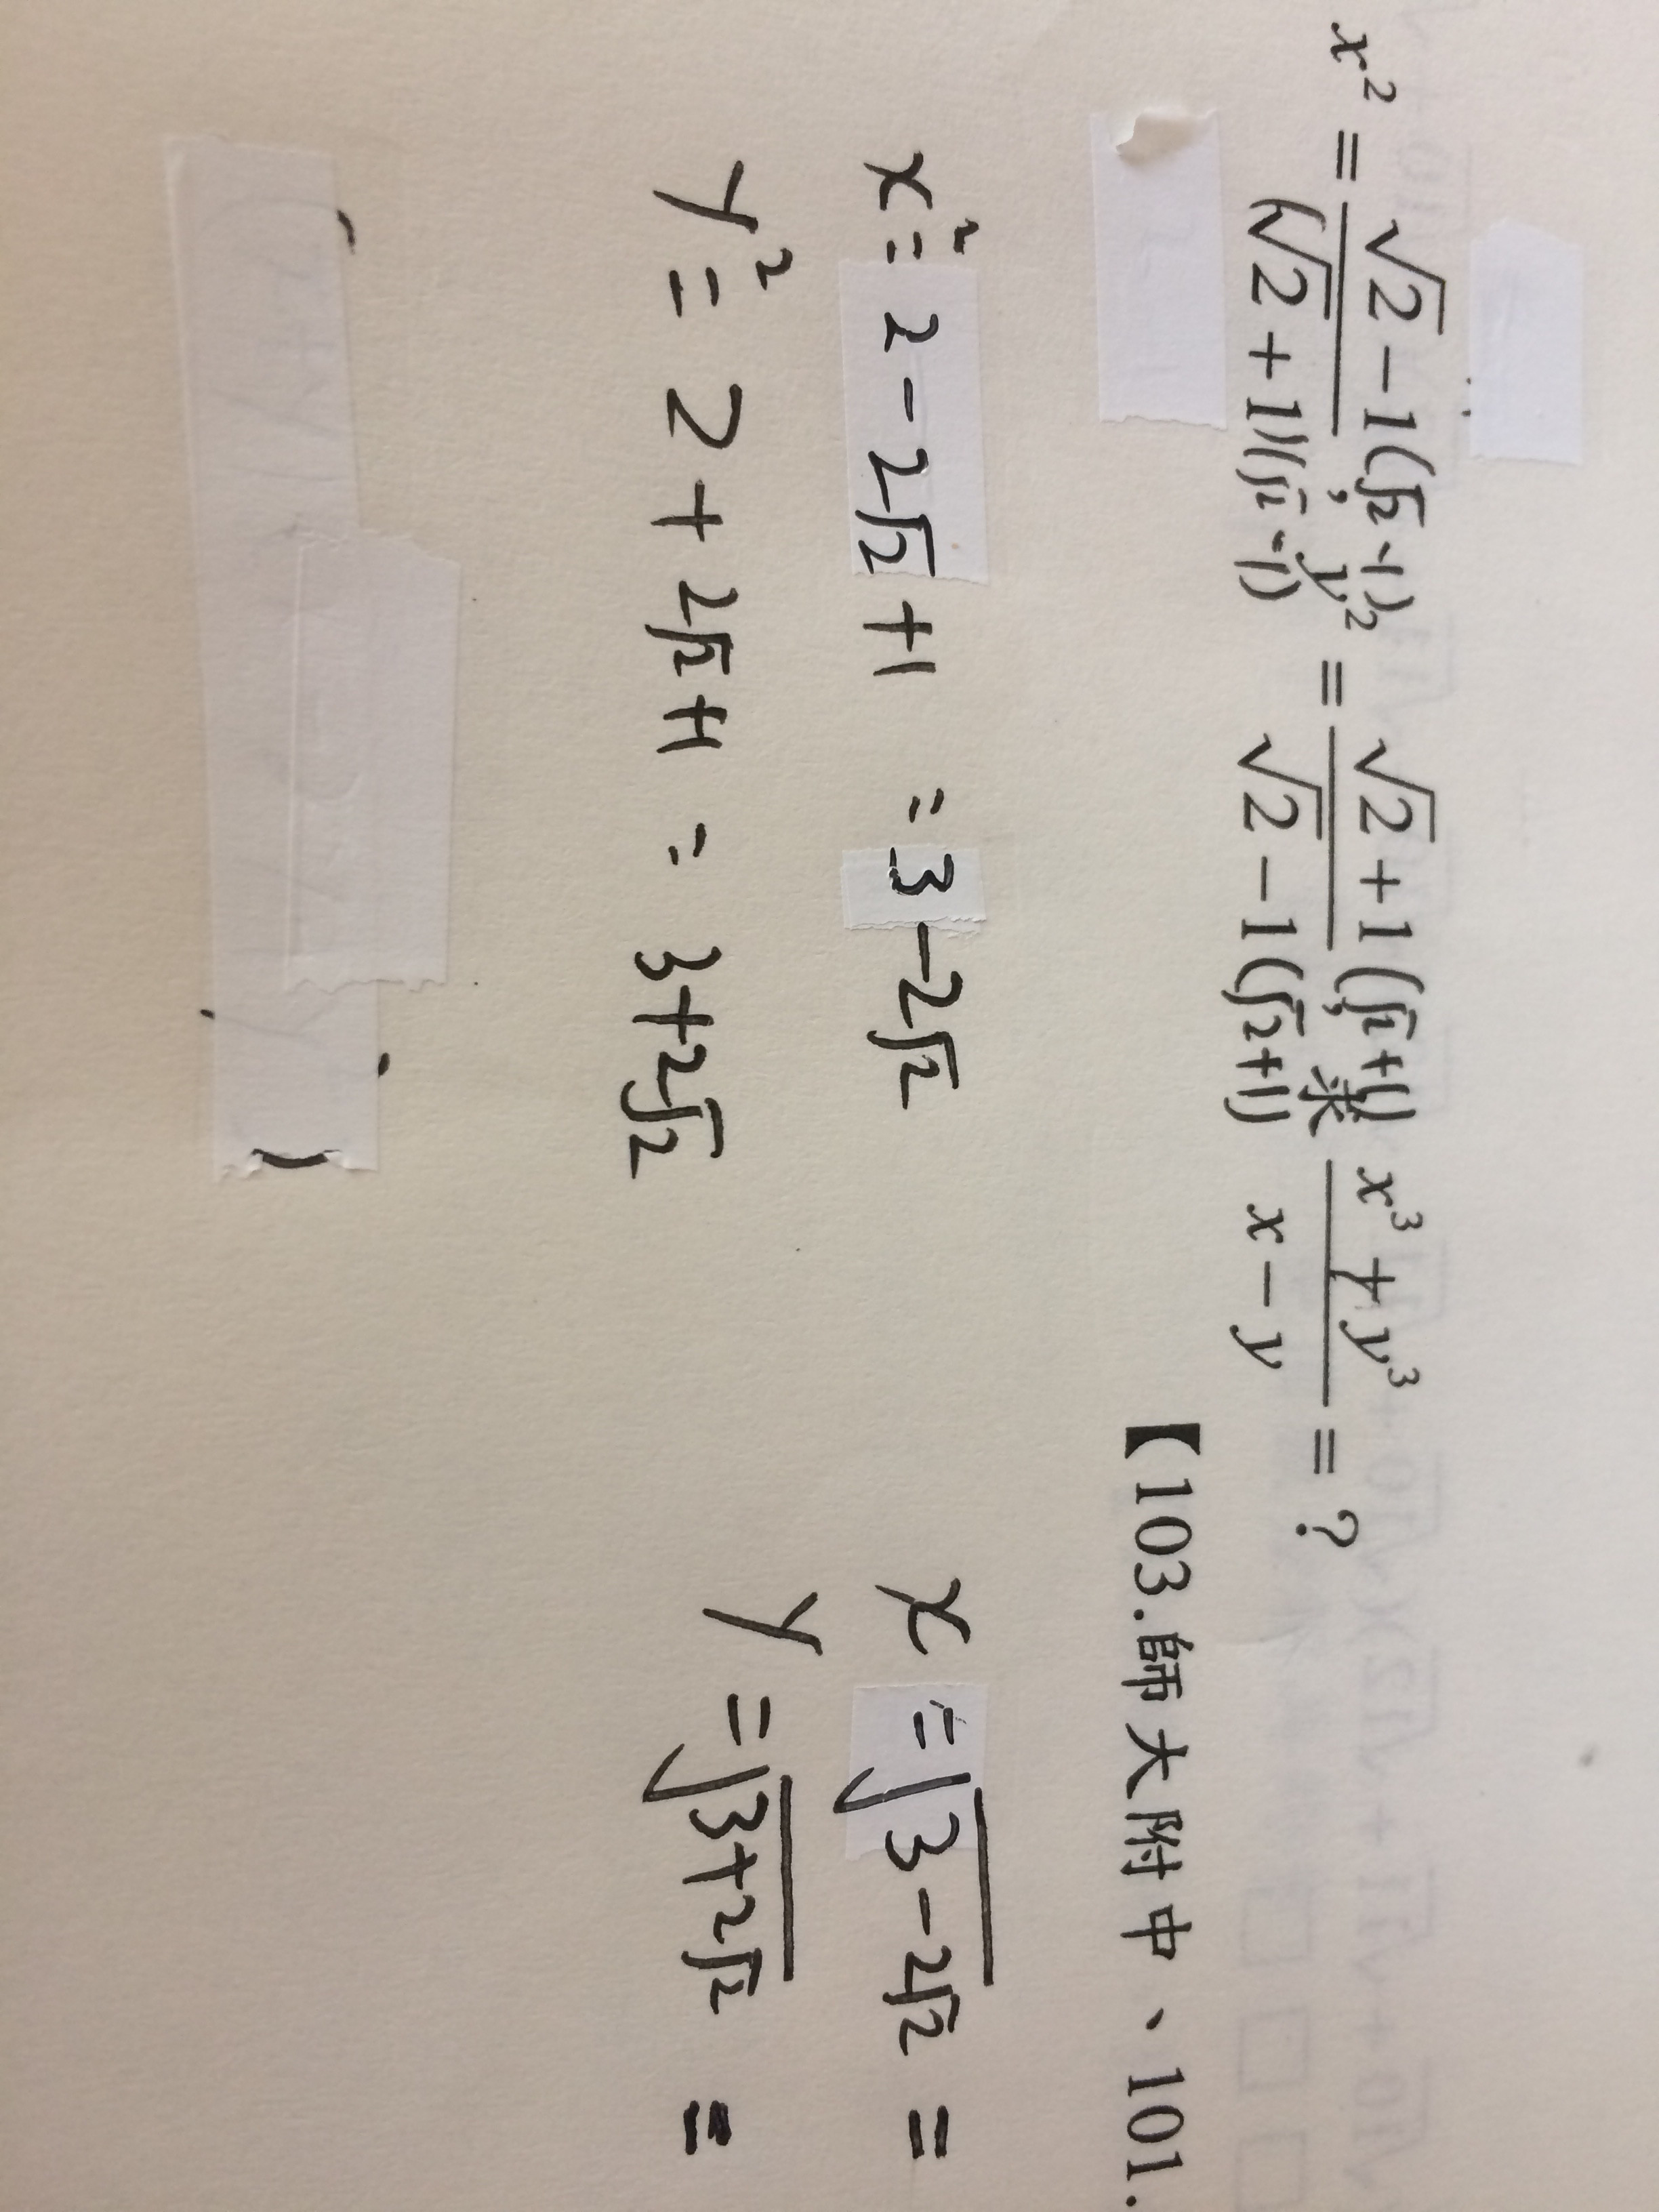 x² = √2 − 1(√2 − 1) / (√2 + 1)(√2 − 1) , y² = √2 + 1(√2 + 1) / √2 − 1(√2 + 1) , 求 x³ + y³ / x − y = ?
【103.師大附中、101.
x² = 2 − 2√2 + 1 = 3 − 2√2 x = √(3 − 2√2) =
y² = 2 + 2√2 + 1 = 3 + 2√2 y = √(3 + 2√2) =